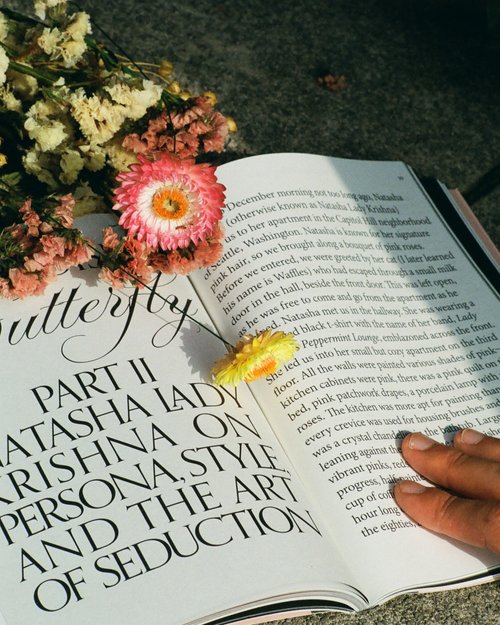 Butterfly
PART II
NATASHA LADY
KRISHNA ON
PERSONA, STYLE,
AND THE ART
OF SEDUCTION
December morning not too long ago, Natasha
(otherwise known as Natasha Lady Krishna)
us to her apartment in the Capitol Hill neighborhood
of Seattle, Washington. Natasha is known for her signature
pink hair, so we brought along a bouquet of pink roses.
Before we entered, we were greeted by her cat (I later learned
his name is Waffles) who had escaped through a small milk
door in the hall, beside the front door. This was left open,
as he was free to come and go from the apartment as he
Natasha met us in the hallway. She was wearing a
and black t-shirt with the name of her band, Lady
Peppermint Lounge, emblazoned across the front.
She led us into her small but cozy apartment on the third
floor. All the walls were painted various shades of pink,
kitchen cabinets were pink, there was a pink quilt on
bed, pink patchwork drapes, a porcelain lamp with
roses. The kitchen was more apt for painting
every crevice was used for housing brushes a
was a crystal chan
leaning against the
vibrant pinks, red
progress, half
cup of co
hour long
the eighties